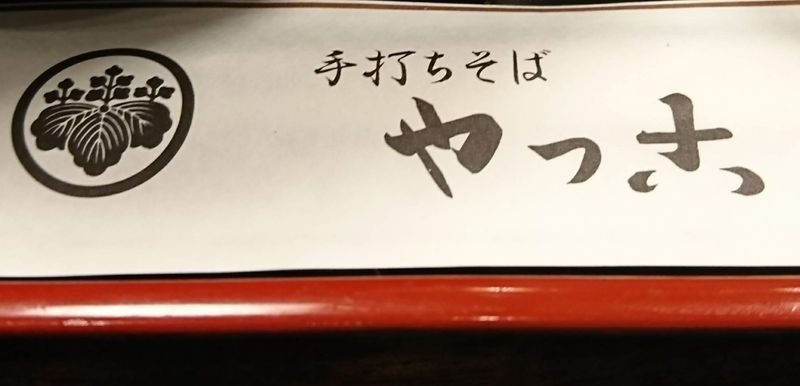 手打ちそば
やっ古